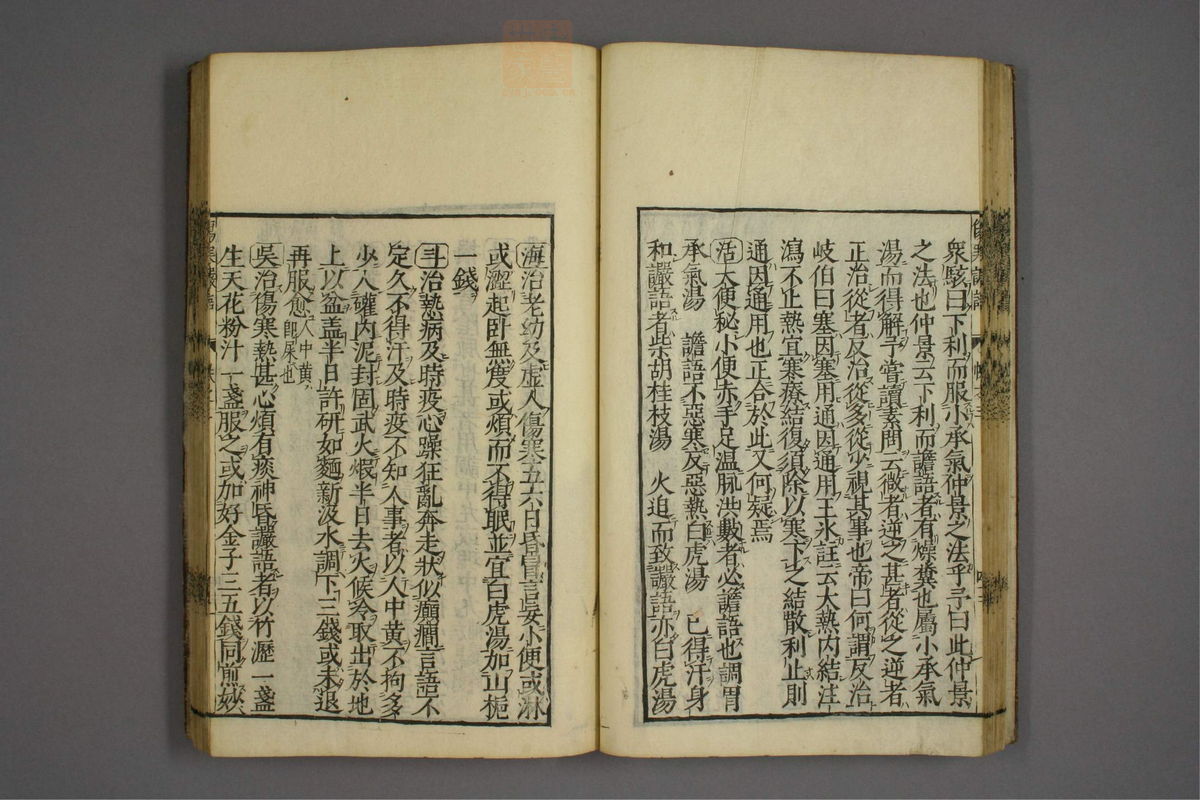 衆駭曰下利而服小承氣仲景之法乎予曰此仲景
之法也仲景云下利而譫語者有燥糞也屬小承氣
湯而得解予嘗讀素問云微者逆之甚者從之逆者
正治從者反治從多從少視其事也帝曰何謂反治
岐伯曰塞因塞用通因通用王氷註云大熱内結注
瀉不止熱宜寒療結復須除以寒下之結散利止則
通因通用也正合於此又何疑焉
活大便秘小便赤手足温脉洪數者必譫語也調胃
承氣湯　譫語不惡寒反惡熱白虎湯　已得汗身
和讝語者柴胡桂枝湯　火迫而致讝語亦白虎湯
海治老幼及虚人傷寒五六日昏冒言妄小便或淋
或澀起卧無度或煩而不得眠並宜白虎湯加山梔
一錢
斗治熱病及時疫心躁狂亂奔走狀似癲癇言語不
定久不得汗及時疫不知人事者以人中黄不拘多
少入罐内泥封固武火煆半日去火候冷取出於地
上以盆盖半日許研如麵新汲水調下三錢或未退
再服愈人中黄即屎也
吳治傷寒熱甚心煩有痰神昏讝語者以竹瀝一盞
生天花粉汁一盞服之或加好金子三五錢同煎妙